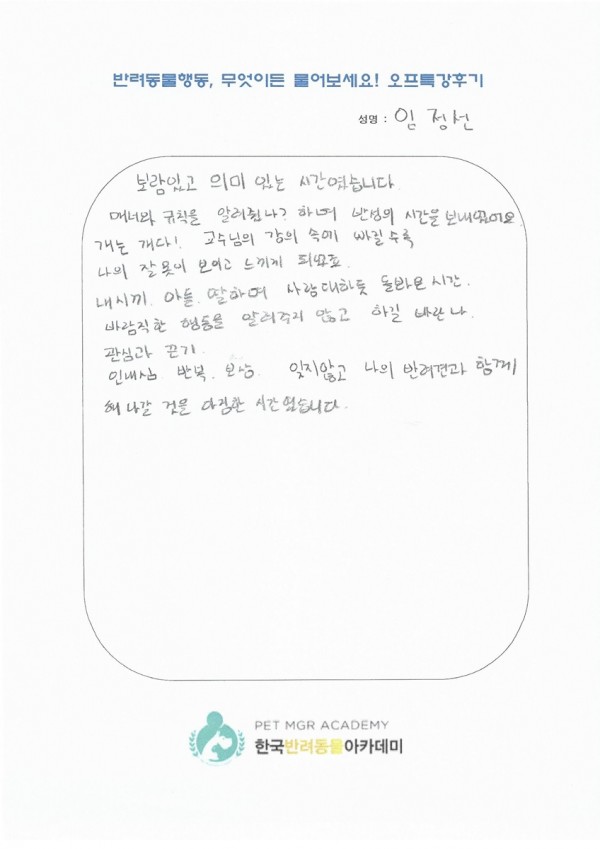 반려동물행동, 무엇이든 물어보세요! 오프특강후기
성명 : 임 정선
보람있고 의미 있는 시간였습니다.
매너와 규칙을 알려줬나? 하며 반성의 시간을 보내었어요.
개는 개다! 교수님의 강의 속에 빠질수록
나의 잘못이 보이고 느끼게 되었죠.
내시끼. 아들. 딸하며 사람대하듯 돌봐온 시간.
바람직한 행동을 알려주지 않고 하길 바란 나.
관심과 끈기.
인내심. 반복. 보상. 잊지않고 나의 반려견과 함께
해 나갈 것을 다짐한 시간였습니다.
PET MGR ACADEMY
한국반려동물아카데미